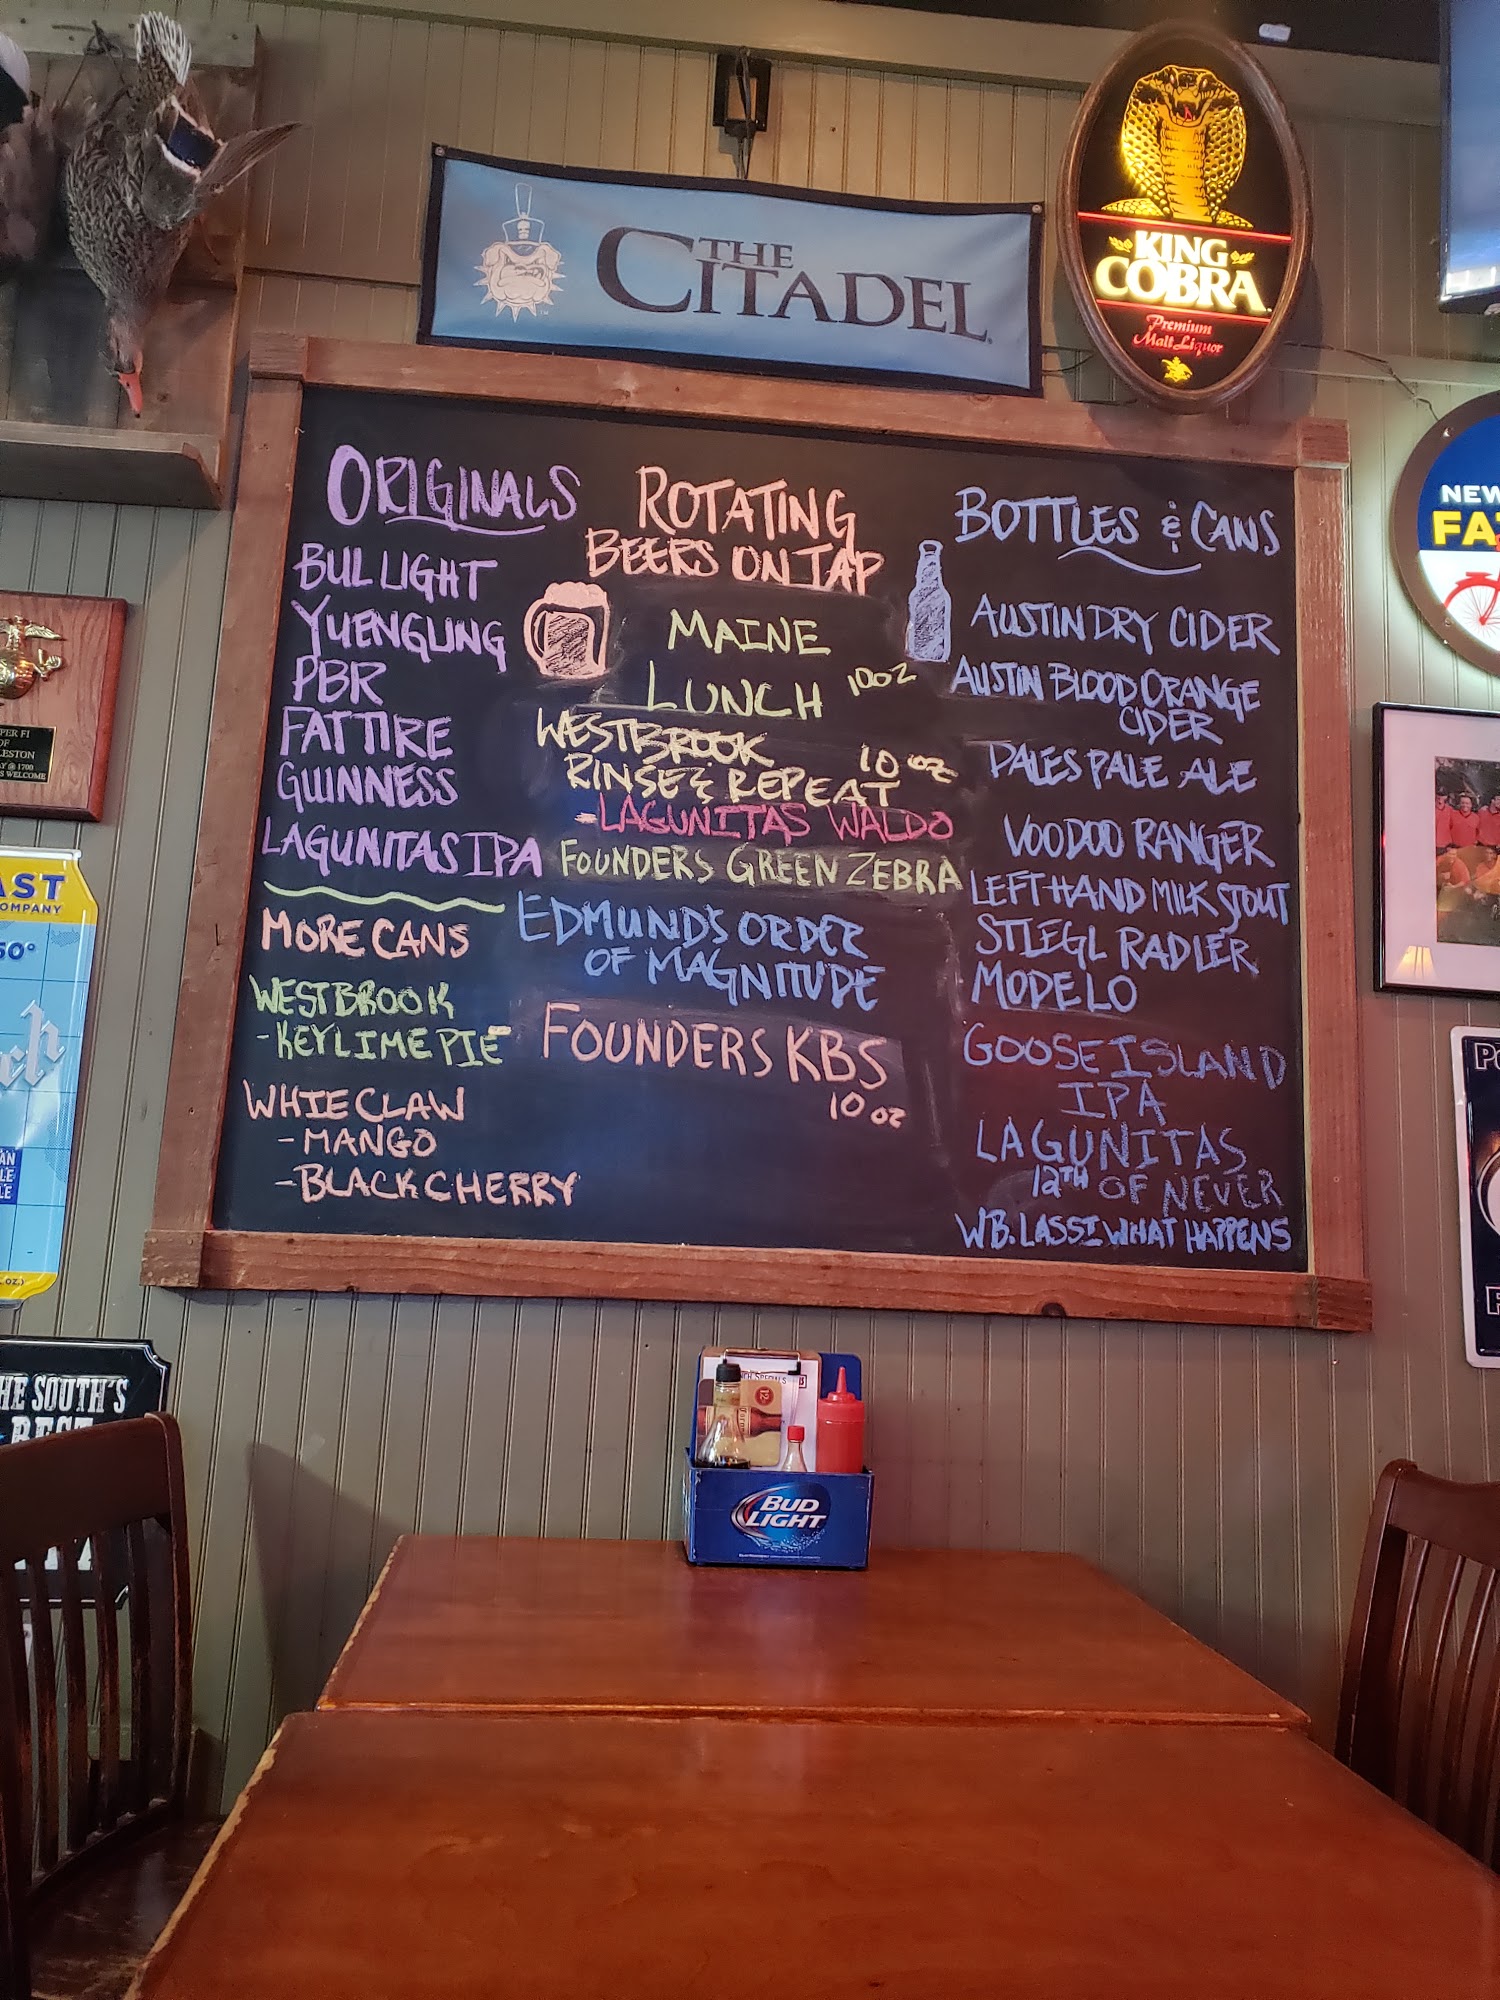 THE
CITADEL
KING
COBRA
Premium
Malt Liquor
ORIGINALS
BUD LIGHT
YUENGLING
PBR
FAT TIRE
GUINNESS
LAGUNITAS IPA
MORE CANS
WESTBROOK
-KEYLIME PIE
WHIE CLAW
-MANGO
-BLACK CHERRY
ROTATING
BEERS ON TAP
MAINE
LUNCH 10OZ
WESTBROOK
RINSE & REPEAT 10 oz
-LAGUNITAS WALDO
FOUNDERS GREEN ZEBRA
EDMUND'S ORDER
OF MAGNITUDE
FOUNDERS KBS
10 oz
BOTTLES & CANS
AUSTIN DRY CIDER
AUSTIN BLOOD ORANGE
CIDER
DALES PALE ALE
VOODOO RANGER
LEFT HAND MILK STOUT
STIEGL RADLER
MODELO
GOOSE ISLAND
IPA
LAGUNITAS
12TH OF NEVER
W.B. LASSI WHAT HAPPENS
NEW
FA
PER FI
OF
LESTON
@ 1700
S WELCOME
AST
OMPANY
50°
ch
AN
LE
LE
OZ.)
HE SOUTH'S
BEST
P
F
BUD
LIGHT